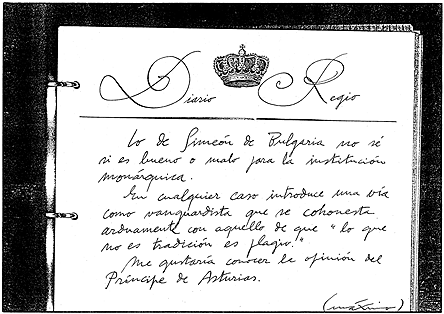 Diario Regio
Lo de Simeón de Bulgaria no sé
si es bueno o malo para la institución
monárquica.
En cualquier caso introduce una vía
como vanguardista que se cohonesta
arduamente con aquello de que "lo que
no es tradición es plagio."
Me gustaría conocer la opinión del
Príncipe de Asturias.
(máximo)